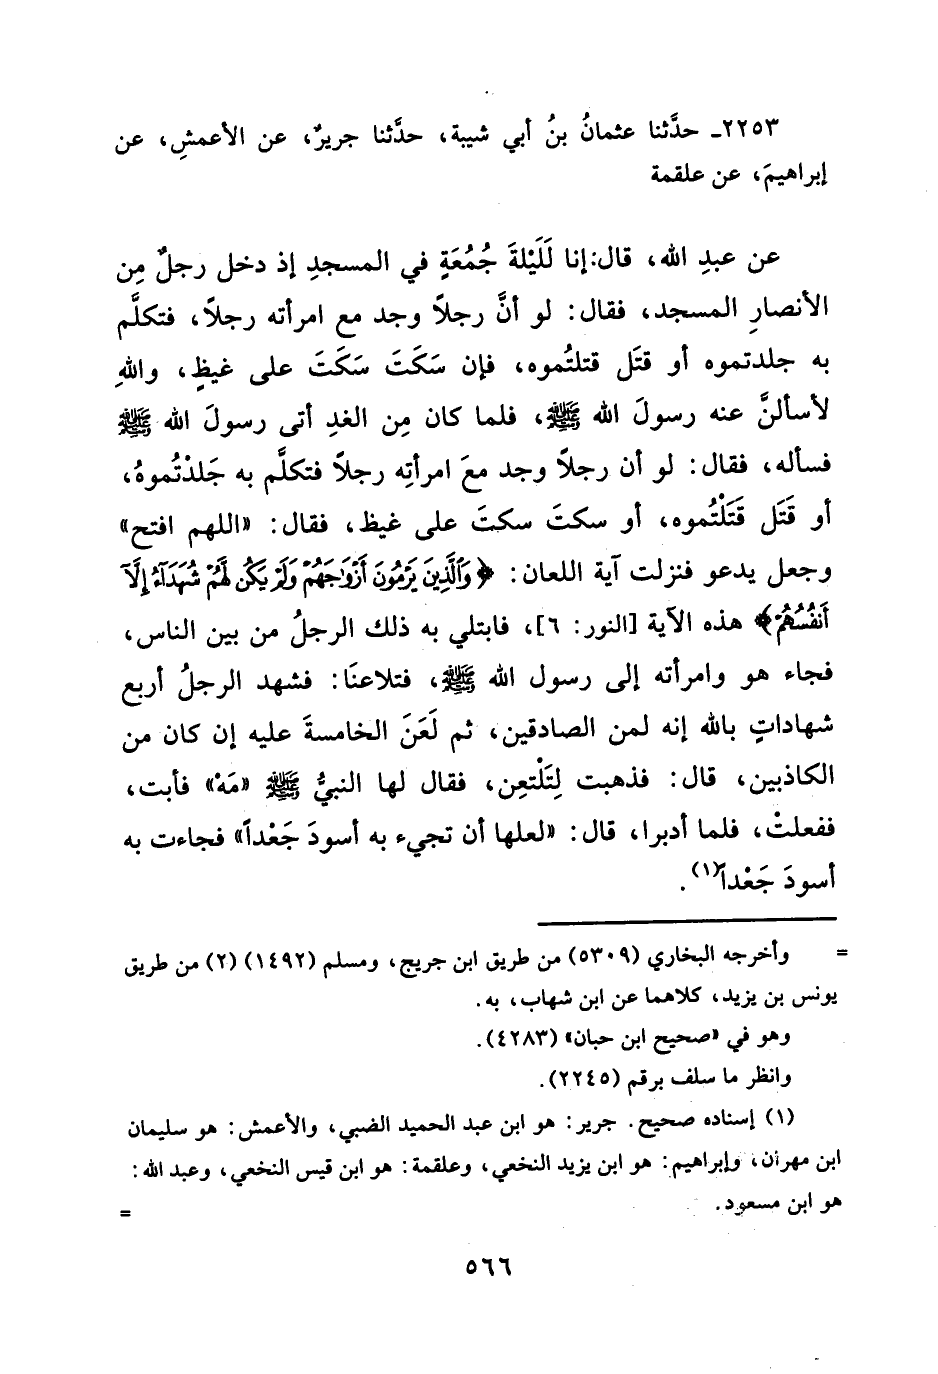 ٢٢٥٣ـ حدَّثنا عثمانُ بنُ أبي شيبة، حدَّثنا جريرٌ، عن الأعمشِ، عن
إبراهيمَ، عن علقمة
عن عبدِ الله، قال: إنا لَلَيْلةَ جُمُعَةٍ في المسجدِ إذ دخل رجلٌ مِن
الأنصارِ المسجد، فقال: لو أنَّ رجلاً وجد مع امرأته رجلاً، فتكلَّم
به جلدتموه أو قتَل قتلتُموه، فإن سَكَتَ سَكَتَ على غيظٍ، واللهِ
لأسألنَّ عنه رسولَ الله ﷺ، فلما كان مِن الغدِ أتى رسولَ الله ﷺ
فسأله، فقال: لو أن رجلاً وجد معَ امرأتِه رجلاً فتكلَّم به جَلدْتُموهُ،
أو قَتَل قَتَلْتُموه، أو سكتَ سكتَ على غيظ، فقال: «اللهم افتح»
وجعل يدعو فنزلت آية اللعان: ﴿وَٱلَّذِينَ يَرْمُونَ أَزْوَٰجَهُمْ وَلَمْ يَكُن لَّهُمْ شُهَدَآءُ إِلَّآ
أَنفُسُهُمْ﴾ هذه الآية [النور: ٦]، فابتلي به ذلك الرجلُ من بين الناس،
فجاء هو وامرأته إلى رسول الله ﷺ، فتلاعنَا: فشهد الرجلُ أربع
شهاداتٍ بالله إنه لمن الصادقين، ثم لَعَنَ الخامسةَ عليه إن كان من
الكاذبين، قال: فذهبت لِتَلْتعِن، فقال لها النبيُّ ﷺ «مَهْ» فأبت،
ففعلتْ، فلما أدبرا، قال: «لعلها أن تجيء به أسودَ جَعْداً» فجاءت به
أسودَ جَعْداً(١).
= وأخرجه البخاري (٥٣٠٩) من طريق ابن جريج، ومسلم (١٤٩٢) (٢) من طريق
يونس بن يزيد، كلاهما عن ابن شهاب، به.
وهو في «صحيح ابن حبان» (٤٢٨٣).
وانظر ما سلف برقم (٢٢٤٥).
(١) إسناده صحيح. جرير: هو ابن عبد الحميد الضبي، والأعمش: هو سليمان
ابن مهران، وإبراهيم: هو ابن يزيد النخعي، وعلقمة: هو ابن قيس النخعي، وعبد الله:
هو ابن مسعود. =
٥٦٦